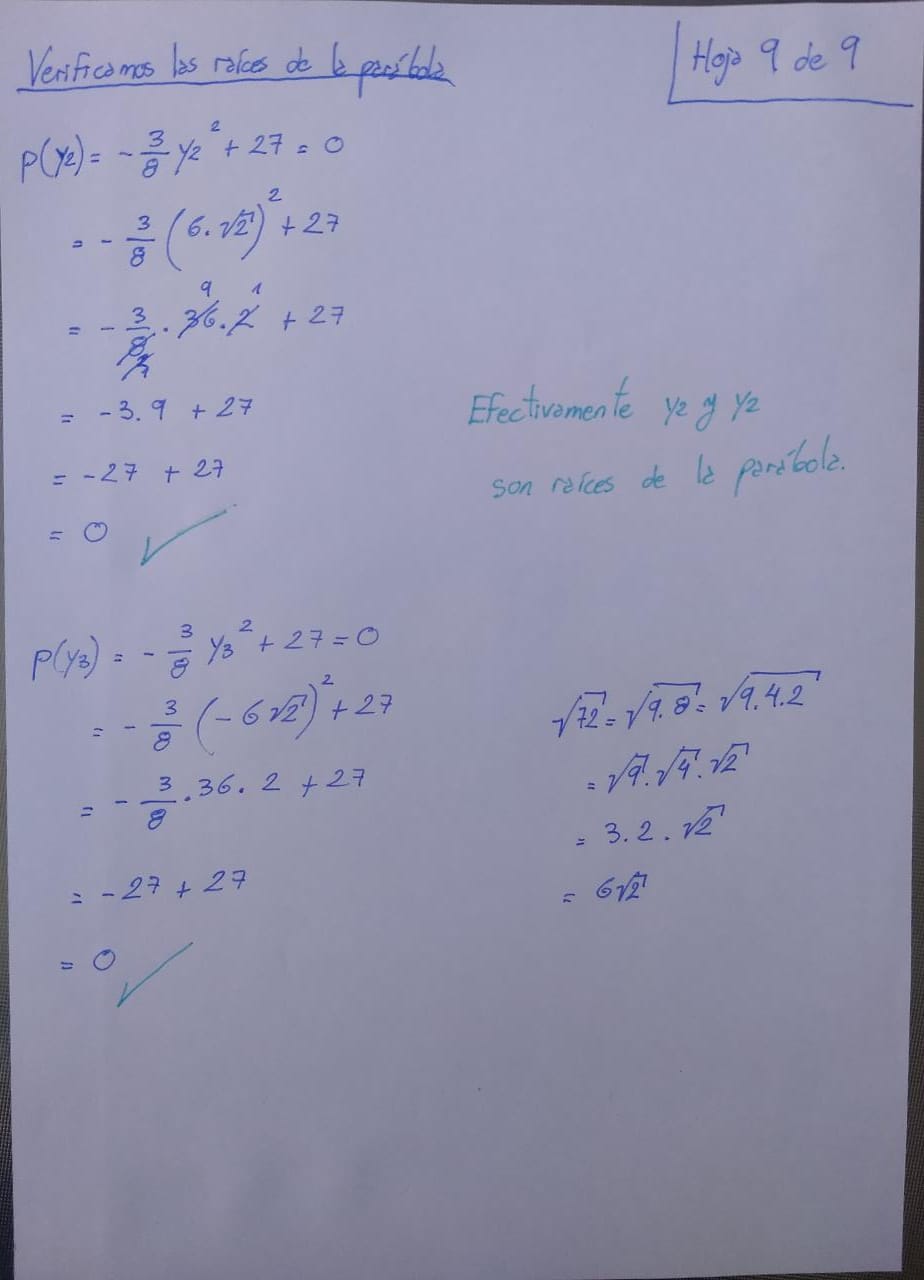 Verificamos las raíces de la parábola
Hoja 9 de 9
P(y2) = - 3/8 y2² + 27 = 0
= - 3/8 (6.√2)² + 27
= - 3/8 . 36 . 2 + 27
9 1
1
= -3.9 + 27
= -27 + 27
= 0 ✓
Efectivamente y2 y y2
son raíces de la parábola.
P(y3) = - 3/8 y3² + 27 = 0
= - 3/8 (-6√2)² + 27
= - 3/8 . 36 . 2 + 27
= -27 + 27
= 0 ✓
√72 = √9.8 = √9.4.2
= √9 . √4 . √2
= 3.2.√2
= 6√2